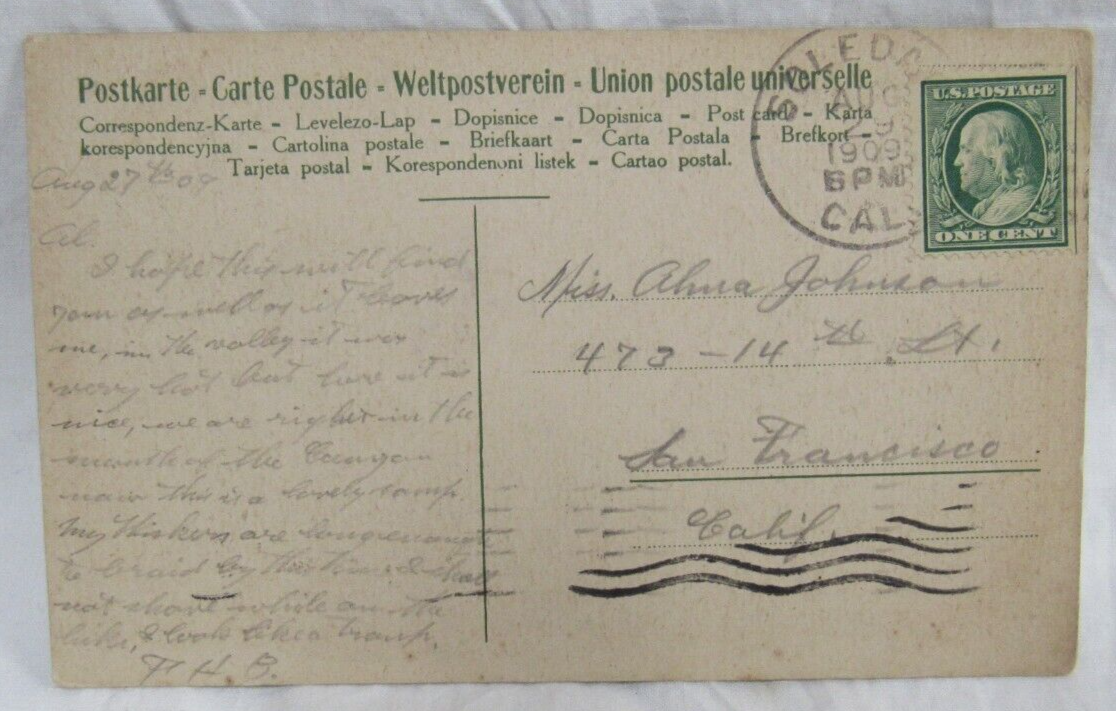 Postkarte - Carte Postale - Weltpostverein - Union postale universelle
Correspondenz-Karte - Levelezo-Lap - Dopisnice - Dopisnica - Post card - Karta
korespondencyjna - Cartolina postale - Briefkaart - Carta Postala - Brefkort -
Tarjeta postal - Korespondenoni listek - Cartao postal.
SOLEDA
AUG
9
1909
6 PM
CAL.
U.S. POSTAGE
ONE CENT
Aug 27th 09
Al.
I hope this will find
you as well as it leaves
me, in the valley it was
very hot but here it is
nice, we are right in the
mouth of the Canyon
now this is a lovely camp.
My Wiskers are long enough
to braid by this time I shall
not shave while on the
hike, I look like a tramp.
F. H. B.
Miss. Alma Johnson
473 - 14 th. St.
San Francisco
Calif.